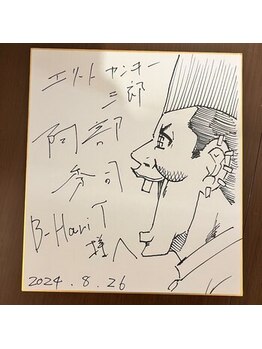 エリートヤンキー
三郎
阿部
秀司
B-HariT
様へ
2024.8.26